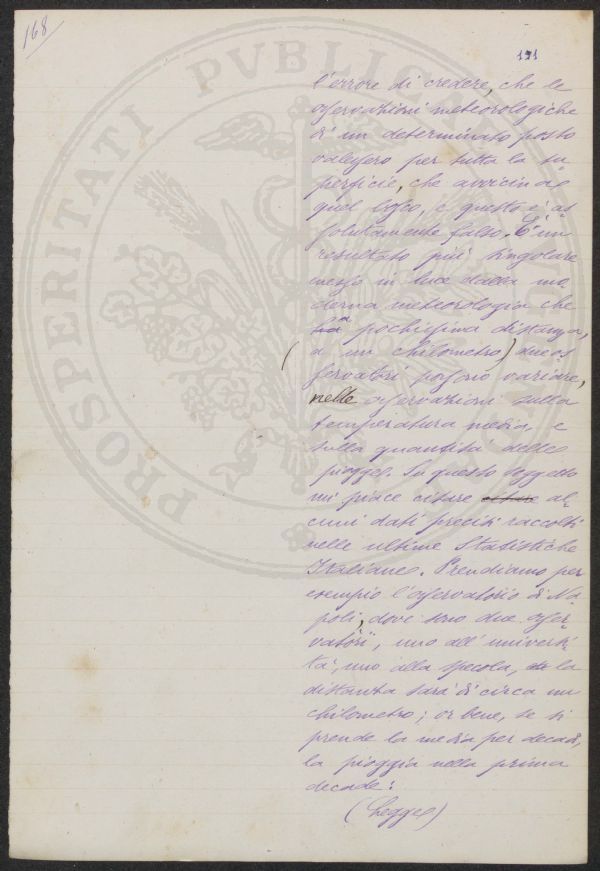 168
191
l'errore di credere, che le
osservazioni meteorologiche
di un determinato posto
valessero per tutta la su
perficie, che avvicinas
quel loco, e questo è as
solutamente falso. È un
resultato più singolare
messo in luce dalla mo
derna meteorologia che
a pochissima distanza,
(a un chilometro) due os
servatori possono variare,
nelle osservazioni sulla
temperatura media e
sulla quantità delle
piogge. Su questo soggetto
mi piace citare citare al
cuni dati precisi raccolti
nelle ultime Statistiche
Italiane. Prendiamo per
esempio l'osservatorio di Na
poli, dove sono due osser
vatorii, uno all'universi
tà, uno alla specola, la
distanza sarà di circa un
chilometro; or bene, se si
prende la media per decadi,
la pioggia nella prima
decade:
(Legge)
PROSPERITATI PVBLICAE